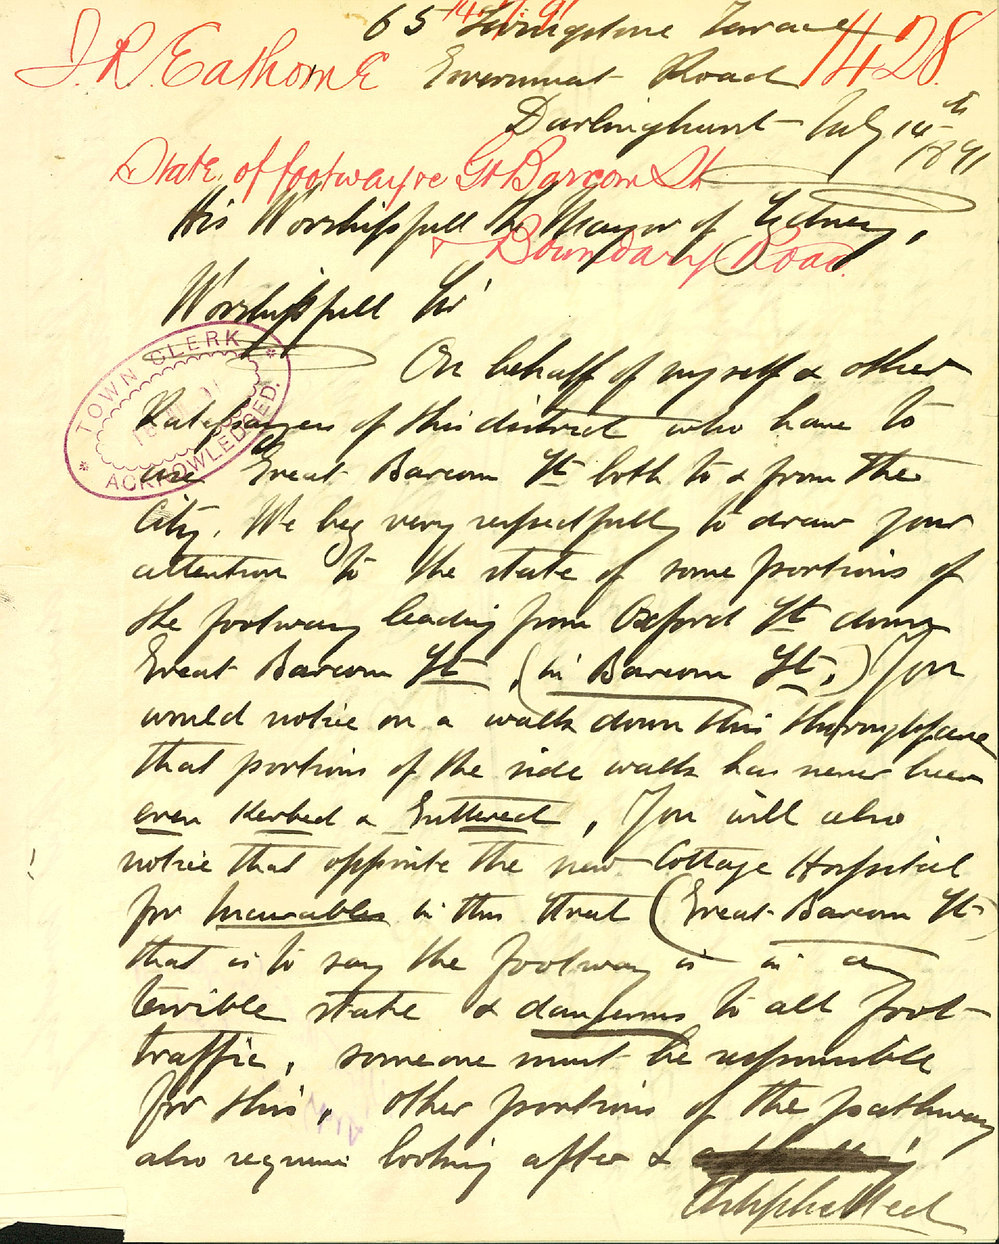 14.7.91
65 Livingstone Terrace
1428
J. R. Eathorne
Goverment Road
Darlinghurst July 14th
1891
State of footway re Gt Barcom St
& Boundary Road.
His Worshipfull the Mayor of Sydney,
Worshipfull Sir
TOWN CLERK
ACKNOWLEDGED.
On behalf of myself & other
Ratepayers of this district who have to
use Great Barcom St both to & from the
City. We beg very respectfully to draw your
attention to the state of some portions of
the footway leading from Oxford St down
Great Barcom St, (in Barcom St,) You
would notice on a walk down this thoroughfare
that portions of the side walk has never been
even Kerbed & Guttered, You will also
notice that opposite the new Cottage Hospital
for Incurables in this street (Great Barcom St)
that is to say the footway is in a
terrible state & dangerous to all foot
traffic, someone must be responsible
for this, other portions of the pathway
also require looking after &
Asphalted